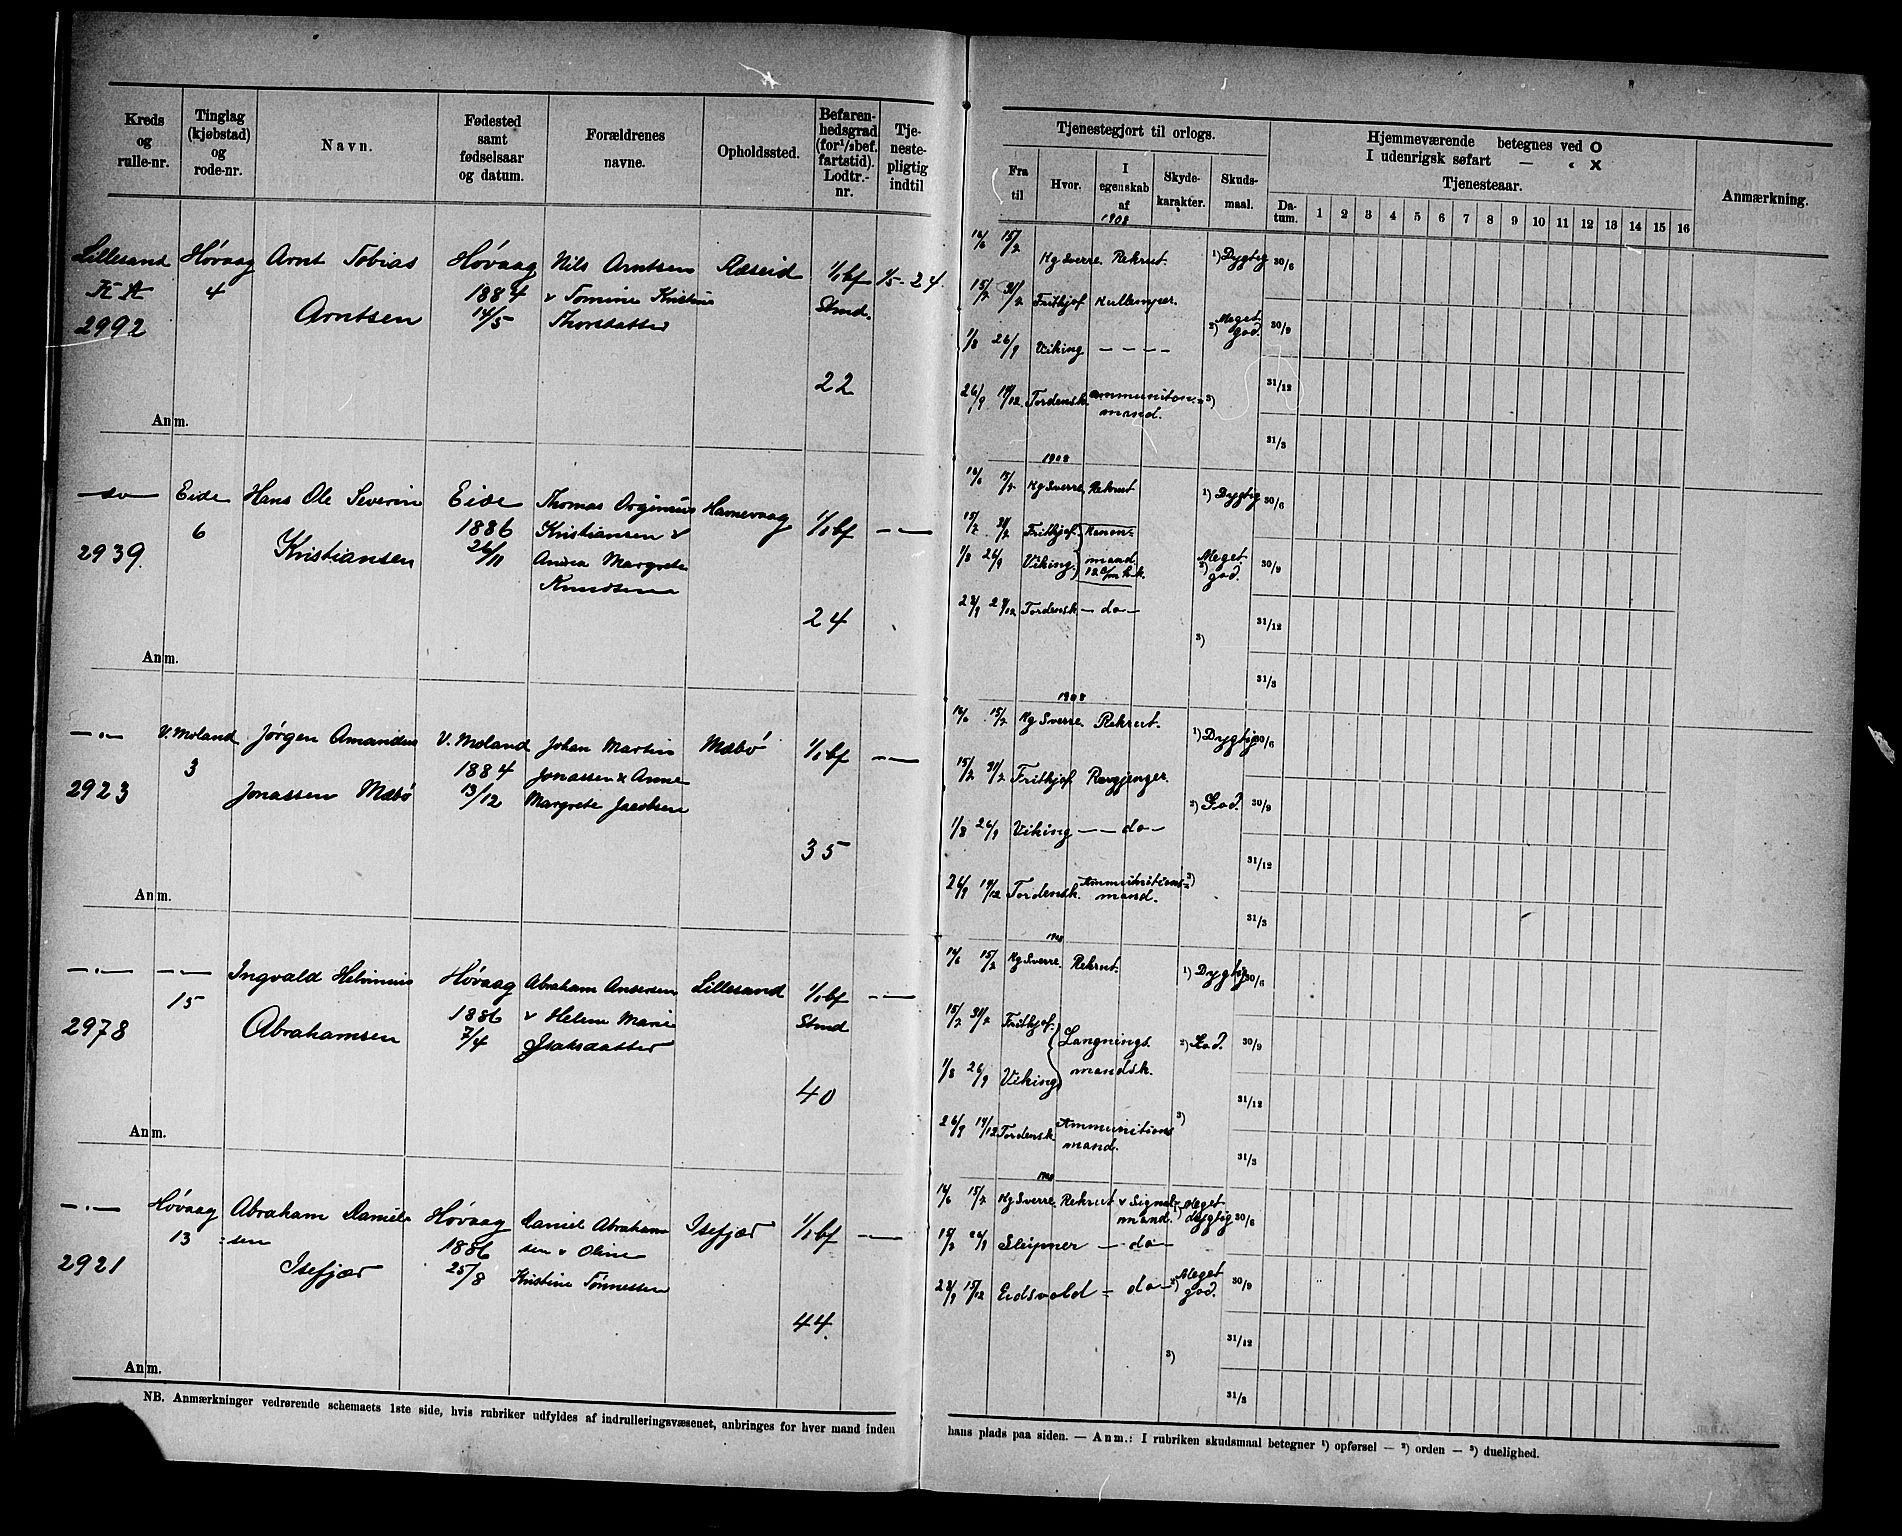 Kreds og rulle-nr.
Tinglag (kjøbstad) og rode-nr.
Navn.
Fødested samt fødselsaar og datum.
Forældrenes navne.
Opholdssted.
Befaren-hedsgrad (for 1/2 bef. fartstid). Lodtr.-nr.
Tje-neste-pligtig indtil
Tjenestegjort til orlogs.
Fra til
Hvor.
I egenskab af
Skyde-karakter.
Skuds-maal.
Hjemmeværende betegnes ved O
I udenrigsk søfart — „ X
Tjenesteaar.
Da-tum. 1 2 3 4 5 6 7 8 9 10 11 12 13 14 15 16
Anmærkning.
1908
Lillesand Høvaag Arnt Tobias Høvaag Nils Arntsen 1/1 bf 1/5-24
4 1884 & Tomine Kristine
2992 Arntsen 14/5 Stmd.
22
Anm.
15/7 Kg Sverre Rekrut. 1) Dygtig 30/6
15/7 31/7 Fritkjof Kullemper.
1/8 26/9 Viking — — — — 2) Meget god. 30/9
26/9 Tordensk. Ammunitions= mand. 3) 31/12
31/3
1908
—do— Eide Hans Ole Severin Eide Thomas Orginius 1/1 bf — —
6 1886 Kristiansen &
2939 Kristiansen 26/11 Andrea Margrete
Knudsen
24
Anm.
Kg Sverre Rekrut 1) Dygtig 30/6
15/7 31/7 Fritkjof Kanon=
1/8 26/9 Viking mand. 2) Meget god. 30/9
Tordensk. — do — 31/12
3)
31/3
1908
—„— V. Moland Jørgen Amandus V. Moland Johan Martin Mæbø 1/1 bf — —
3 1884 Jonassen & Anne
2923 Jonassen Mæbø 13/12 Margrete Jacobsen
35
Anm.
15/7 Kg Sverre Rekrut. 1) Dygtig 30/6
15/7 31/7 Fritkjof
2) God. 30/9
1/8 26/9 Viking — — do —
31/12
Tordensk. Ammunitions= mand. 3)
31/3
1908
—„— — — Ingvald Høvaag Abraham Andersen Lillesand 1/1 bf — —
15 1886 & Helene Marie Stmd
2978 Abrahamsen 7/4 Isaksdatter
40
Anm.
15/7 Kg Sverre Rekrut. 1) Dygtig 30/6
15/7 31/7 Fritkjof Langnings. 2) God. 30/9
1/8 26/9 Viking mandsk.
31/12
26/9 Tordensk. Ammunitions mand. 3)
31/3
1908
—„— Høvaag Abraham Daniel Høvaag Daniel Abraham Isefjær 1/1 bf — —
13 =sen 1886 sen & Oline
2921 Isefjær 25/8 Kristine Tønnessen
44.
Anm.
15/7 Kg Sverre. Rekrut & Signal= mand. 1) Meget dygtig 30/6
Sleipner — do —
Eidsvold = do — 2) Meget god. 30/9
31/12
3)
31/3
NB. Anmærkninger vedrørende schemaets 1ste side, hvis rubriker udfyldes af indrulleringsvæsenet, anbringes for hver mand inden
hans plads paa siden. — Anm.: I rubriken skudsmaal betegner 1) opførsel — 2) orden — 3) duelighed.